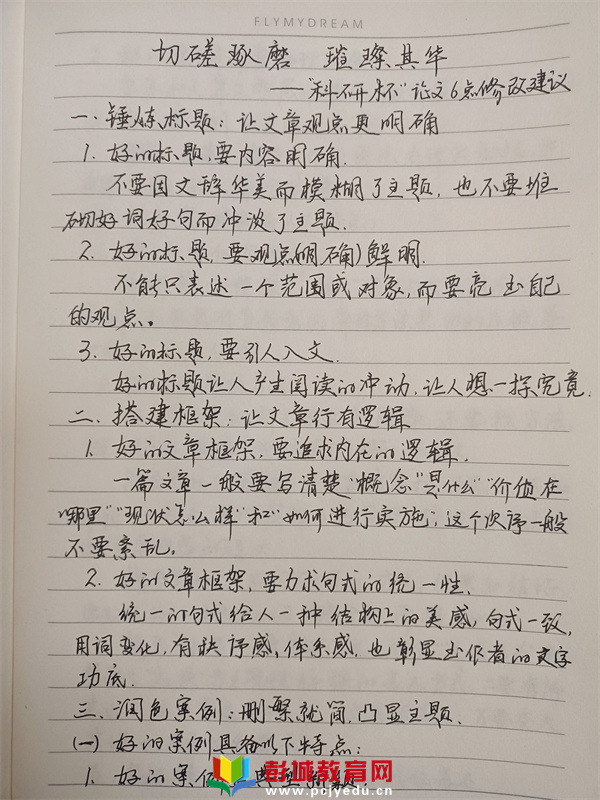 FLYMYDREAM
切磋琢磨 璀璨其华
——"科研杯"论文6点修改建议
一、锤炼标题：让文章观点更明确
1. 好的标题，要内容明确.
不要因文辞华美而模糊了主题，也不要堆
砌好词好句而冲淡了主题.
2. 好的标题，要观点(明确)鲜明.
不能只表述一个范围或对象，而要亮出自己
的观点。
3. 好的标题，要引人入文.
好的标题让人产生阅读的冲动，让人想一探究竟.
二、搭建框架：让文章行有逻辑
1. 好的文章框架，要追求内在的逻辑.
一篇文章一般要写清楚"概念""是什么""价值在
哪里""现状怎么样"和"如何进行实施；这个次序一般
不要紊乱。
2. 好的文章框架，要力求句式的统一性.
统一的句式给人一种结构上的美感，句式一致，
用词变化，有秩序感、体系感，也彰显出作者的文字
功底.
三、润色案例：删繁就简，凸显主题.
(一) 好的案例具备以下特点：
1. 好的案例
彭城教育网
www.pcjyedu.cn